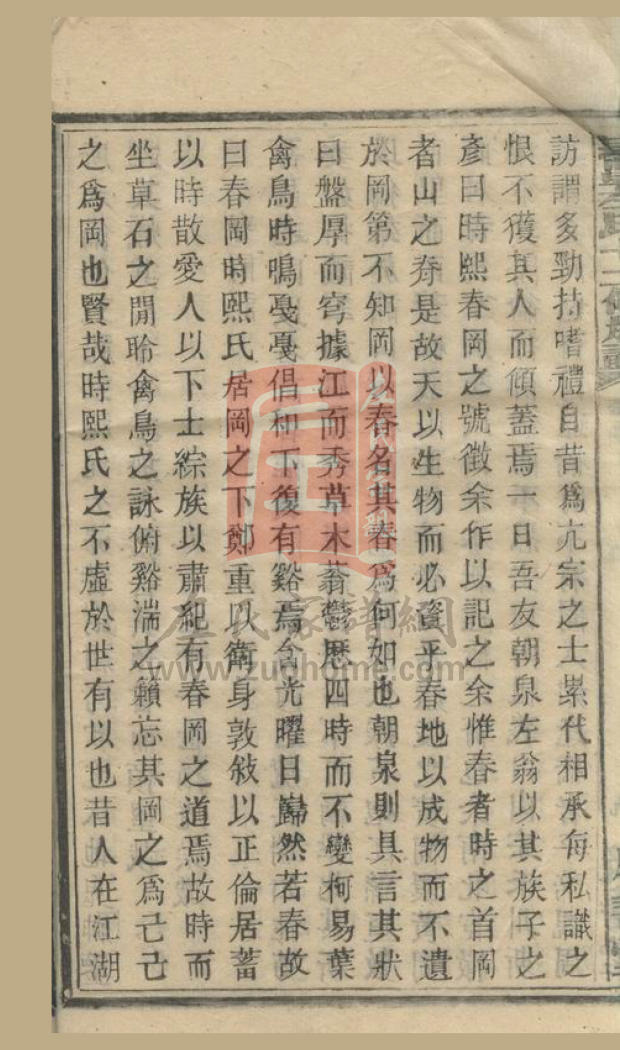 訪謂多勁持嗜禮自昔爲亢宗之士纍代相承每私識之
恨不獲其人而傾蓋焉一日吾友朝泉左翁以其族子之
彥曰時熙春岡之號徵余作以記之余惟春者時之首岡
者山之脊是故天以生物而必資乎春地以成物而不遺
於岡第不知岡以春名其春爲何如也朝泉則具言其狀
曰盤厚而穹據江而秀草木蓊鬱歴四時而不變柯易葉
禽鳥時鳴戞戞倡和下復有谿焉含光曜日巋然若春故
曰春岡時熙氏居岡之下鄭重以衛身敦敍以正倫居蓄
以時散愛人以下士綜族以肅紀有春岡之道焉故時而
坐草石之閒聆禽鳥之詠俯谿湍之籟忘其岡之爲己己
之爲岡也賢哉時熙氏之不虛於世有以也昔人在江湖
左氏家譜網
www.zuohome.com